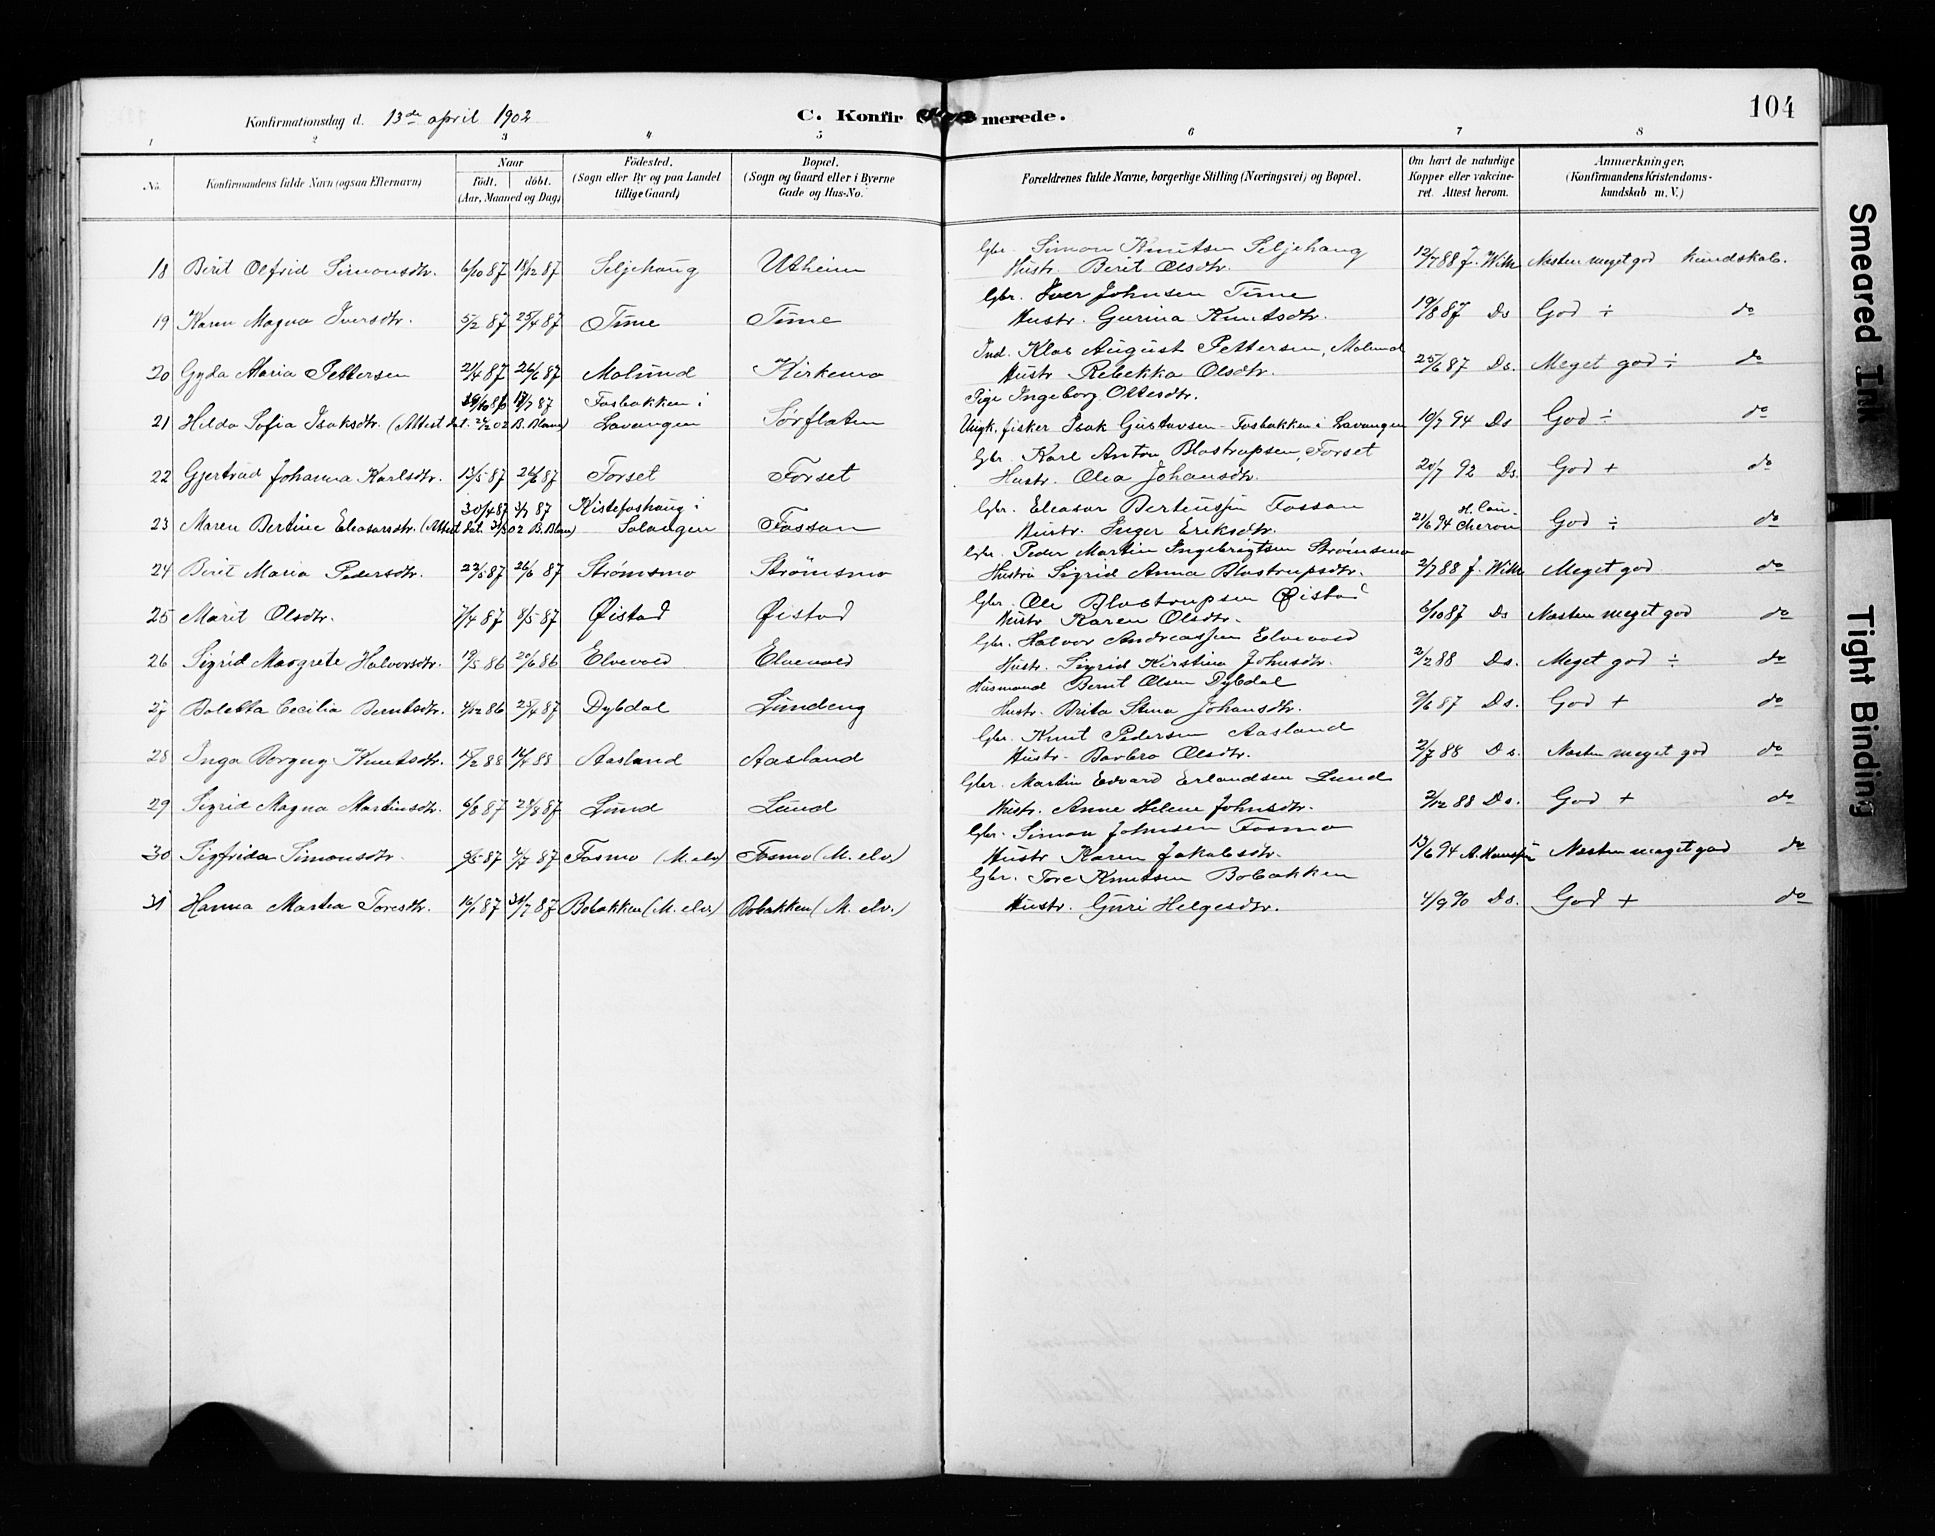 Konfirmationsdag d. 13de april 1902
C. Konfirmerede.
104
1 2 3 4 5 6 7 8
No. Konfirmandens fulde Navn (ogsaa Efternavn) Naar født. døbt. (Aar, Maaned og Dag) Fødested. (Sogn eller By og paa Landet tillige Gaard) Bopæl. (Sogn og Gaard eller i Byerne Gade og Hus-No. Forældrenes fulde Navne, borgerlige Stilling (Næringsvei) og Bopæl. Om havt de naturlige Kopper eller vakcineret. Attest herom. Anmærkninger. (Konfirmandens Kristendomskundskab m. V.)
Gbr. Simon Knutsen Seljehaug
18 Berit Olfrid Simonsdtr. 6/10 87 18/12 87 Seljehaug Utheim Hustr. Berit Olsdtr. 12/7 88 J. Wilh Næsten meget god kundskab.
Gbr. Iver Johnsen Time
19 Karen Magna Iversdtr. 5/2 87 25/4 87 Time Time Hustr. Gurina Knutsdtr. 19/8 87 Ds God ÷ do
Ind. Klas August Pettersen, Molund
20 Gyda Maria Pettersen 21/4 87 26/6 87 Molund Kirkemo Hustr Rebekka Olsdtr. 25/6 87 Ds. Meget god ÷ do
29/10 86 17/7 87 Fosbakken i Pige Ingeborg Ottesdtr.
21 Hilda Sofia Isaksdtr. (Attest dat. 27/2 02 B. Blans) Lavangen Sørflaten Ungk. fisker Isak Gustavsen - Fosbakken i Lavangen 10/7 94 Ds God ÷ do
Gbr. Karl Anton Blostrupsen, Forset
22 Gjertrud Johanna Karlsdtr. 15/5 87 26/6 87 Forset Forset Hustr. Olea Johansdtr. 20/7 92 Ds. God + do
30/4 87 3/7 87 Kistefoshaug i Gbr. Eleasar Berteussen Fossan
23 Maren Bertine Eleasarsdtr. (Attest dat. 3/3 02 B. Blans) Salangen Fossan Hustr. Inger Eriksdtr. 21/6 94 God ÷ do
Gbr. Peder Martin Ingebrigtsen Strømsmo
24 Berit Maria Pedersdtr. 22/5 87 26/6 87 Strømsmo Strømsmo Hustru Sigrid Anna Blostrupsdtr. 2/7 88 J. Wilh Meget god do
Gbr. Ole Blostrupsen Øistad
25 Marit Olsdtr. 7/4 87 8/5 87 Øistad Øistad Hustr Karen Olsdtr. 6/10 87 Ds Næsten meget god do
Gbr. Halvor Andreassen Elvevold
26 Sigrid Margrete Halvorsdtr. 19/5 86 20/6 86 Elvevold Elvevold Hustr. Sigrid Kirstina Johnsdtr. 2/2 88 Ds. Meget god ÷ do
Husmand Bernt Olsen Dybdal
27 Boletta Cecilia Berntsdtr. 4/12 86 25/4 87 Dybdal Lundeng Hustr. Brita Stina Johansdtr. 9/6 87 Ds. God + do
Gbr. Knut Pedersen Aasland
28 Inga Borgny Knutsdtr. 15/2 88 16/4 88 Aasland Aasland Hustr. Barbro Olsdtr. 2/7 88 Ds. Næsten meget god do
Gbr. Martin Edvard Erlandsen Lund
29 Sigrid Magna Martinsdtr. 6/8 87 28/8 87 Lund Lund Hustr. Anne Helene Johnsdtr. 2/12 88 Ds. God + do
Gbr. Simon Johnsen Fosmo
30 Sigfrida Simonsdtr. 5/5 87 4/7 87 Fosmo (M. elv) Fosmo (M. elv.) Hustr Karen Jakobsdtr. 13/6 94 A. Hanssen Næsten meget god do
Gbr. Tore Knutsen Bobakken
31 Hanna Martea Toresdtr. 16/1 87 31/7 87 Bobakken (M. elv) Bobakken (M. elv.) Hustr. Guri Helgesdtr. 4/9 90 Ds. God + do
Smeared Ink
Tight Binding